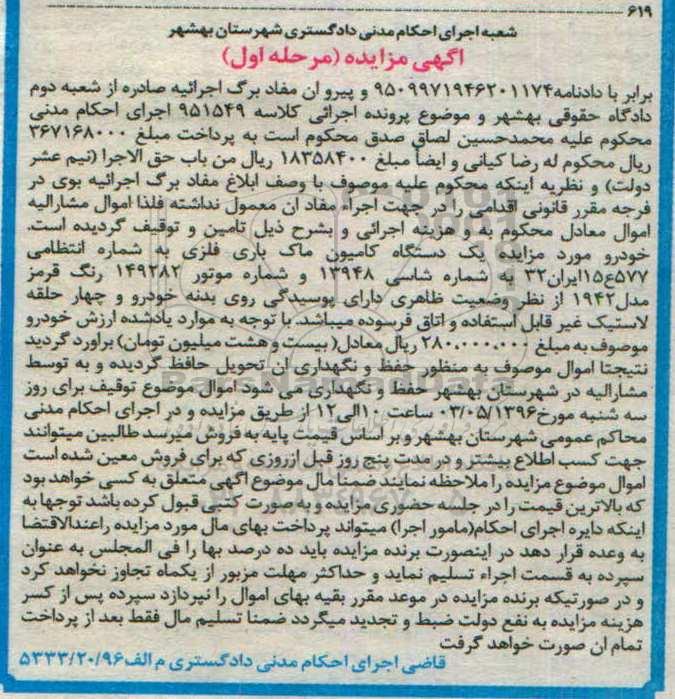 ۶۱۹
شعبه اجرای احکام مدنی دادگستری شهرستان بهشهر
آگهی مزایده (مرحله اول)
برابر با دادنامه ۹۵۰۹۹۷۱۹۴۶۲۰۱۱۷۴ و پیرو ان مفاد برگ اجرائیه صادره از شعبه دوم
دادگاه حقوقی بهشهر و موضوع پرونده اجرائی کلاسه ۹۵۱۵۴۹ اجرای احکام مدنی
محکوم علیه محمدحسین لصاق صدق محکوم است به پرداخت مبلغ ۳۶۷۱۶۸۰۰۰
ریال محکوم له رضا کیانی و ایضاً مبلغ ۱۸۳۵۸۴۰۰ ریال من باب حق الاجرا (نیم عشر
دولت) و نظریه اینکه محکوم علیه موصوف با وصف ابلاغ مفاد برگ اجرائیه بوی در
فرجه مقرر قانونی اقدامی را در جهت اجراء مفاد ان معمول نداشته فلذا اموال مشارالیه
اموال معادل محکوم به و هزینه اجرائی و بشرح ذیل تامین و توقیف گردیده است.
خودرو مورد مزایده یک دستگاه کامیون ماک باری فلزی به شماره انتظامی
۵۷۷ع۱۵ایران۳۲ به شماره شاسی ۱۳۹۴۸ و شماره موتور ۱۴۹۲۸۲ رنگ قرمز
مدل۱۹۴۲ از نظر وضعیت ظاهری دارای پوسیدگی روی بدنه خودرو و چهار حلقه
لاستیک غیر قابل استفاده و اتاق فرسوده میباشد. با توجه به موارد یادشده ارزش خودرو
موصوف به مبلغ ۲۸۰،۰۰۰،۰۰۰ ریال معادل( بیست و هشت میلیون تومان) براورد گردید
نتیجتا اموال موصوف به منظور حفظ و نگهداری ان تحویل حافظ گردیده و به توسط
مشارالیه در شهرستان بهشهر حفظ و نگهداری می شود اموال موضوع توقیف برای روز
سه شنبه مورخ۰۳/۰۵/۱۳۹۶ ساعت ۱۰الی۱۲ از طریق مزایده و در اجرای احکام مدنی
محاکم عمومی شهرستان بهشهر و بر اساس قیمت پایه به فروش میرسد طالبین میتوانند
جهت کسب اطلاع بیشتر و در مدت پنج روز قبل ازروزی که برای فروش معین شده است
اموال موضوع مزایده را ملاحظه نمایند ضمنا مال موضوع اگهی متعلق به کسی خواهد بود
که بالاترین قیمت را در جلسه حضوری مزایده و به صورت کتبی قبول کرده باشد توجها به
اینکه دایره اجرای احکام(مامور اجرا) میتواند پرداخت بهای مال مورد مزایده راعندالاقتضا
به وعده قرار دهد در اینصورت برنده مزایده باید ده درصد بها را فی المجلس به عنوان
سپرده به قسمت اجراء تسلیم نماید و حداکثر مهلت مزبور از یکماه تجاوز نخواهد کرد
و در صورتیکه برنده مزایده در موعد مقرر بقیه بهای اموال را نپردازد سپرده پس از کسر
هزینه مزایده به نفع دولت ضبط و تجدید میگردد ضمنا تسلیم مال فقط بعد از پرداخت
تمام ان صورت خواهد گرفت
قاضی اجرای احکام مدنی دادگستری م الف۵۳۳۳/۲۰/۹۶